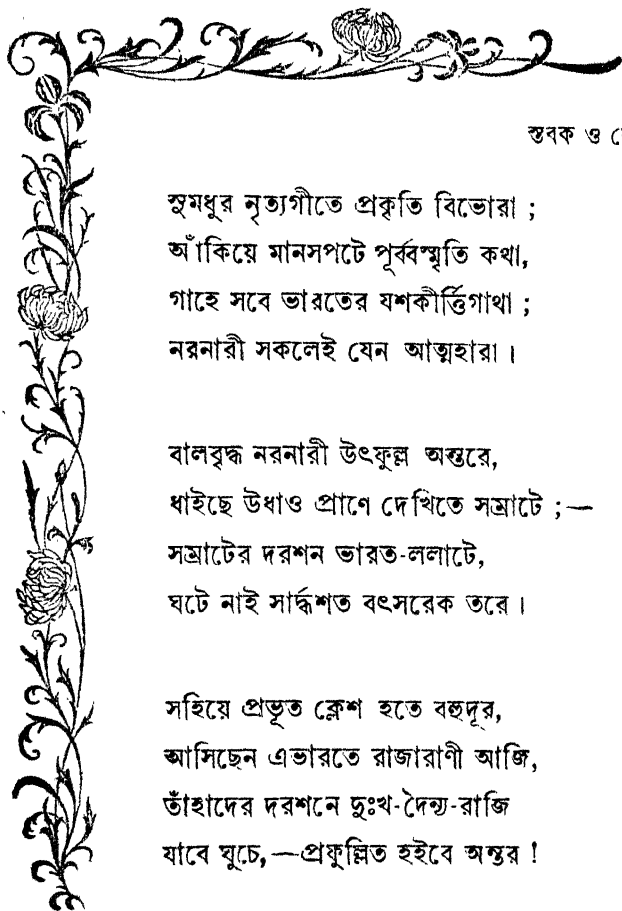 স্তবক ও
সুমধুর নৃত্যগীতে প্রকৃতি বিভোরা ;
আঁকিয়ে মানসপটে পূর্ব্বস্মৃতি কথা,
গাহে সবে ভারতের যশকীর্ত্তিগাথা ;
নরনারী সকলেই যেন আত্মহারা ।
বালবৃদ্ধ নরনারী উৎফুল্ল অন্তরে,
ধাইছে উধাও প্রাণে দেখিতে সম্রাটে ;—
সম্রাটের দরশন ভারত-ললাটে,
ঘটে নাই সার্দ্ধশত বৎসরেক তরে ।
সহিয়ে প্রভূত ক্লেশ হতে বহুদূর,
আসিছেন এভারতে রাজারাণী আজি,
তাঁহাদের দরশনে দুঃখ-দৈন্য-রাজি
যাবে ঘুচে,—প্রফুল্লিত হইবে অন্তর !